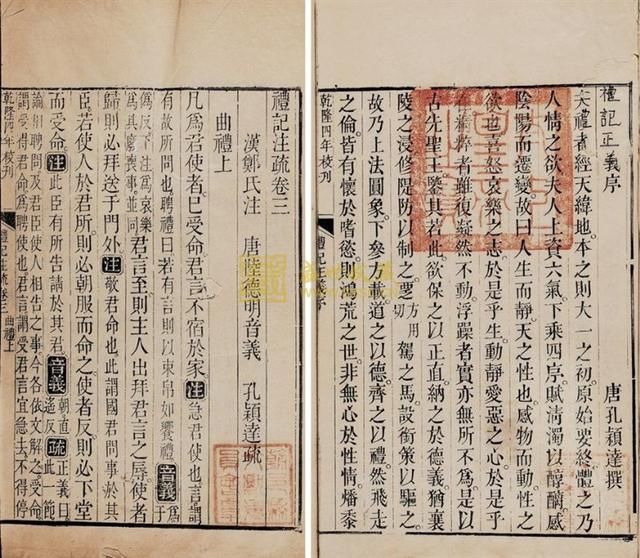 禮記正義序
唐孔穎達撰
夫禮者經天緯地本之則大一之初原始要終體之乃
人情之欲夫人上資六氣下乘四序賦清濁以醇醨感
陰陽而遷變故曰人生而靜天之性也感物而動性之
欲也喜怒哀樂之志於是乎生動靜愛惡之心於是乎
在精粹者雖復凝然不動浮躁者實亦無所不為是以
古先聖王鑒其若此欲保之以正直納之於德義猶襄
陵之浸修隄防以制之覂方用切駕之馬設銜策以驅之
故乃上法圓象下參方載道之以德齊之以禮然飛走
之倫皆有懷於嗜慾則鴻荒之世非無心於性情燔黍
乾隆四年校刊 禮記正義序
禮記注疏卷三
漢鄭氏注 唐陸德明音義 孔穎達疏
曲禮上
凡為君使者已受命君言不宿於家注急君使也言謂
有故所問也聘禮曰若有言則以束帛如饗禮音義于為
為反下注為哀樂為其廢喪事君言至則主人出拜君言之辱使者
歸則必拜送于門外注敬君命也此謂國君問事於其
臣若使人於君所則必朝服而命之使者反則必下堂
而受命注此臣有所告請於其君音義朝直遙反疏正義曰此一節
論聘問及君臣使人相告之事今各依文解之受命
謂受得君命為聘使也君言謂受君言宜急去不得停
乾隆四年校刊 禮記注疏卷三 曲禮上